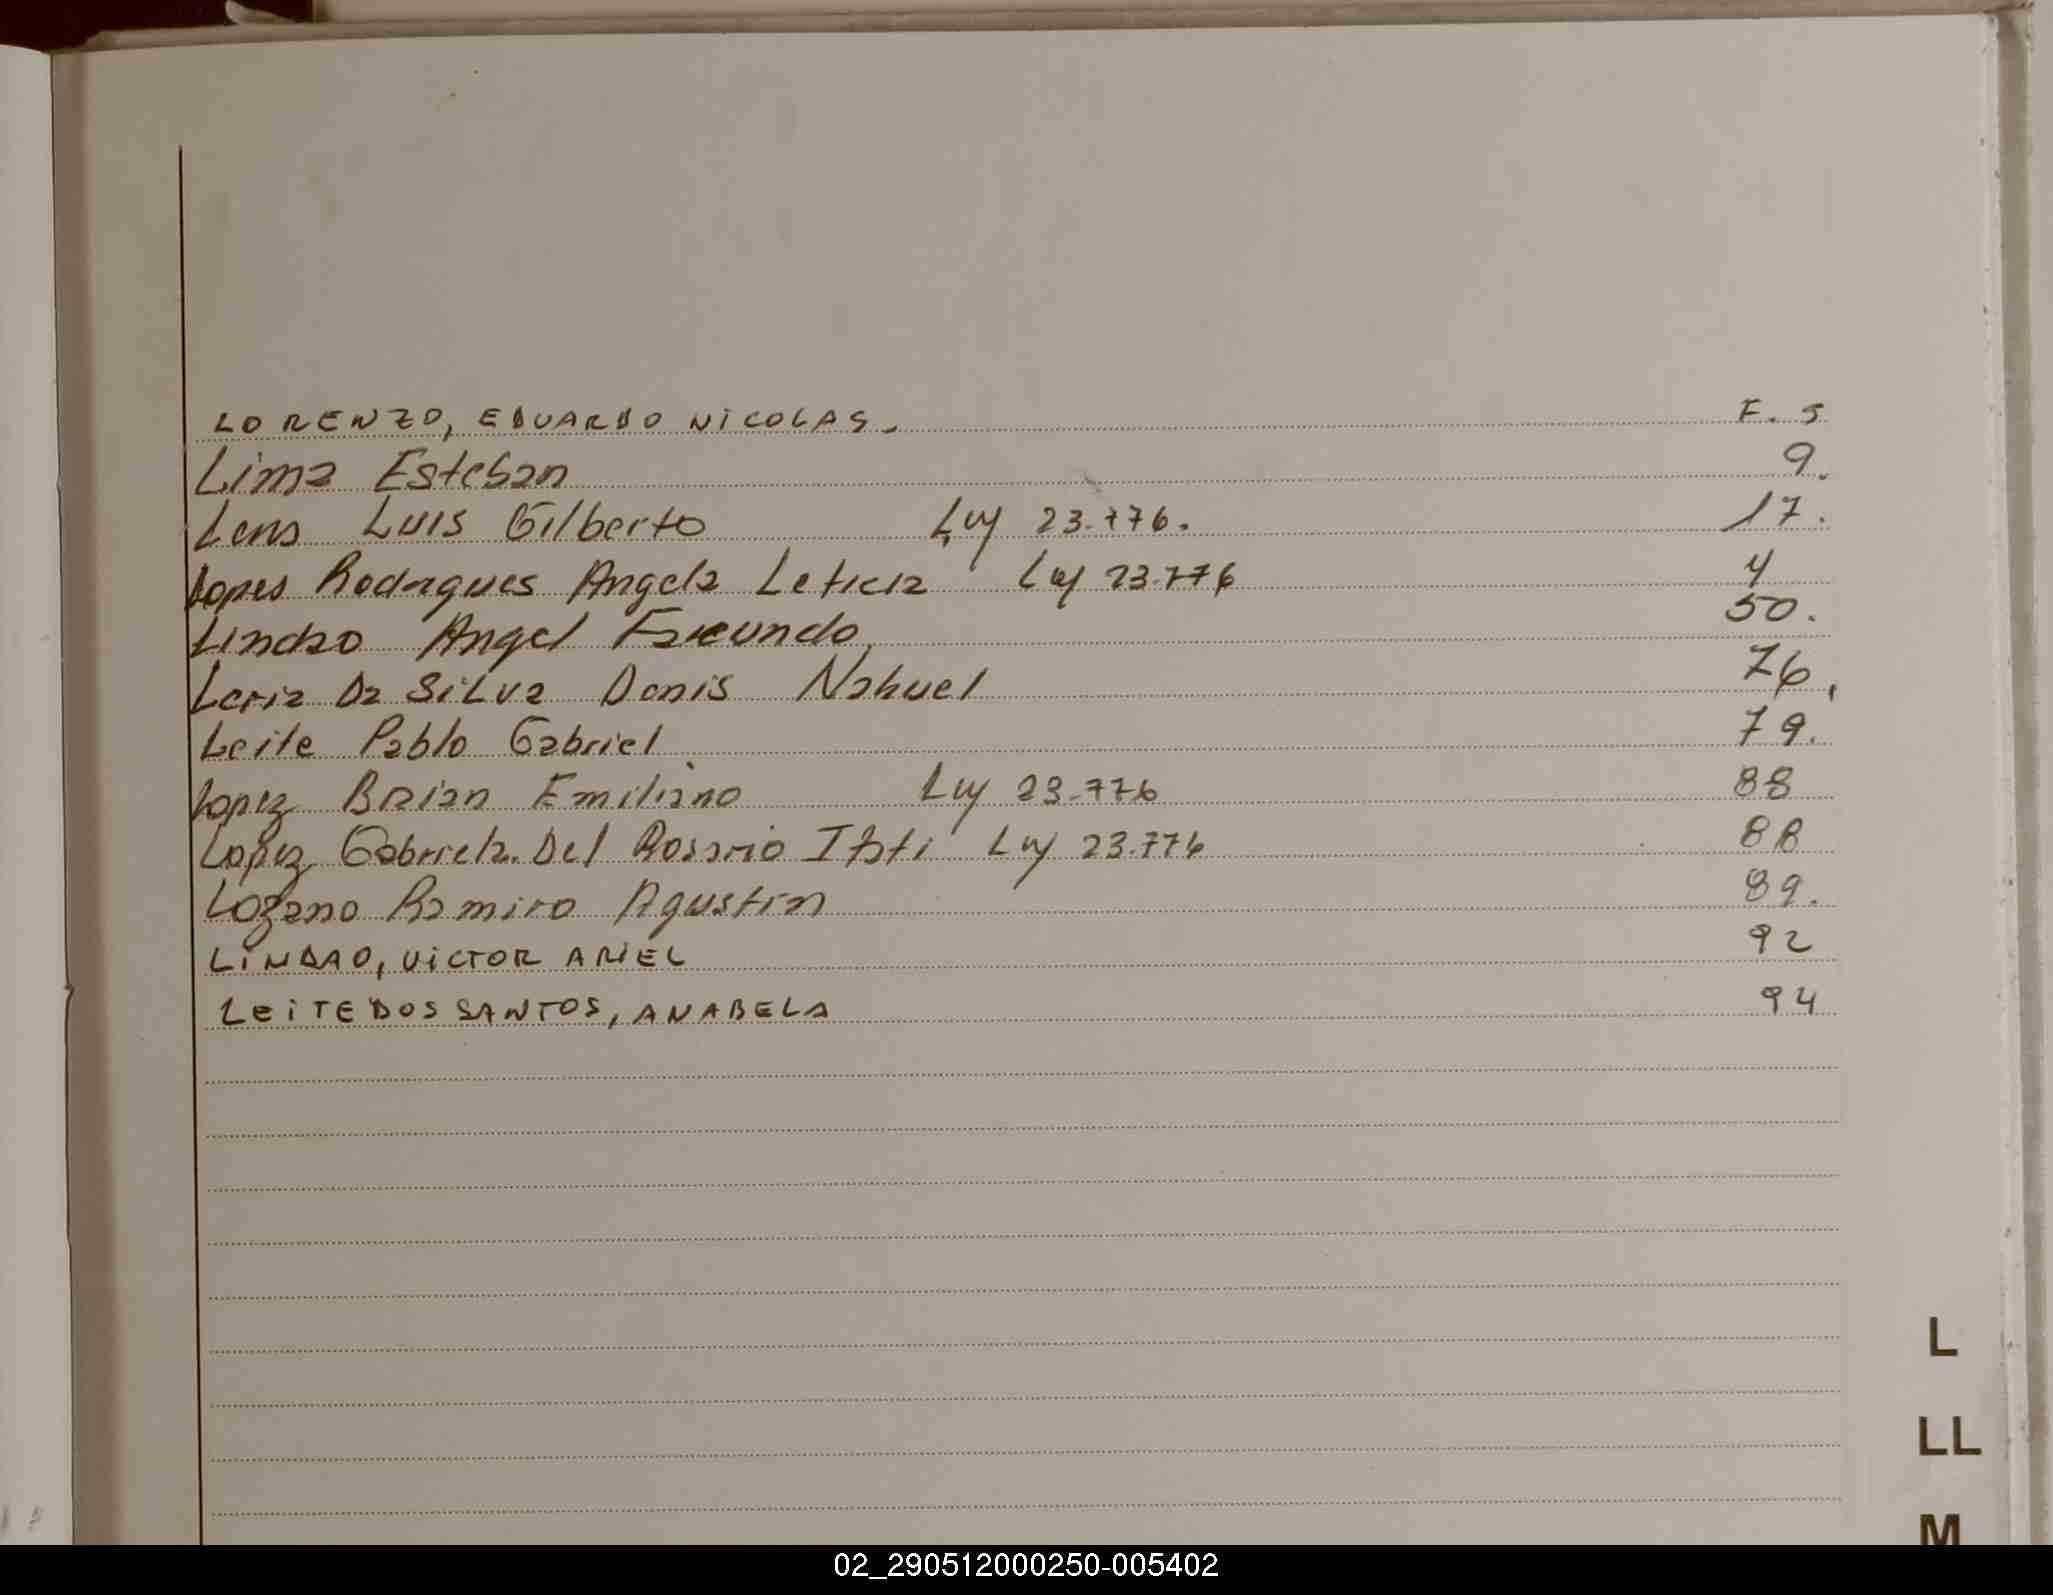 LORENZO, EDUARDO NICOLAS. F. 5
Lima Esteban 9.
Lens Luis Gilberto Ley 23.776. 17.
Lopes Rodrigues Angela Leticia Ley 23.776 4
Lindao Angel Facundo 50.
Leria Da SiLva Denis Nahuel 76.
Leite Pablo Gabriel 79.
Lopez Brian Emiliano Ley 23.776 88
Lopez Gabriela Del Rosario Itati Ley 23.776 88
Lozano Ramiro Agustin 89.
LINDAO, VICTOR ARIEL 92
LEITE DOS SANTOS, ANABELA 94
L
LL
M
02_290512000250-005402